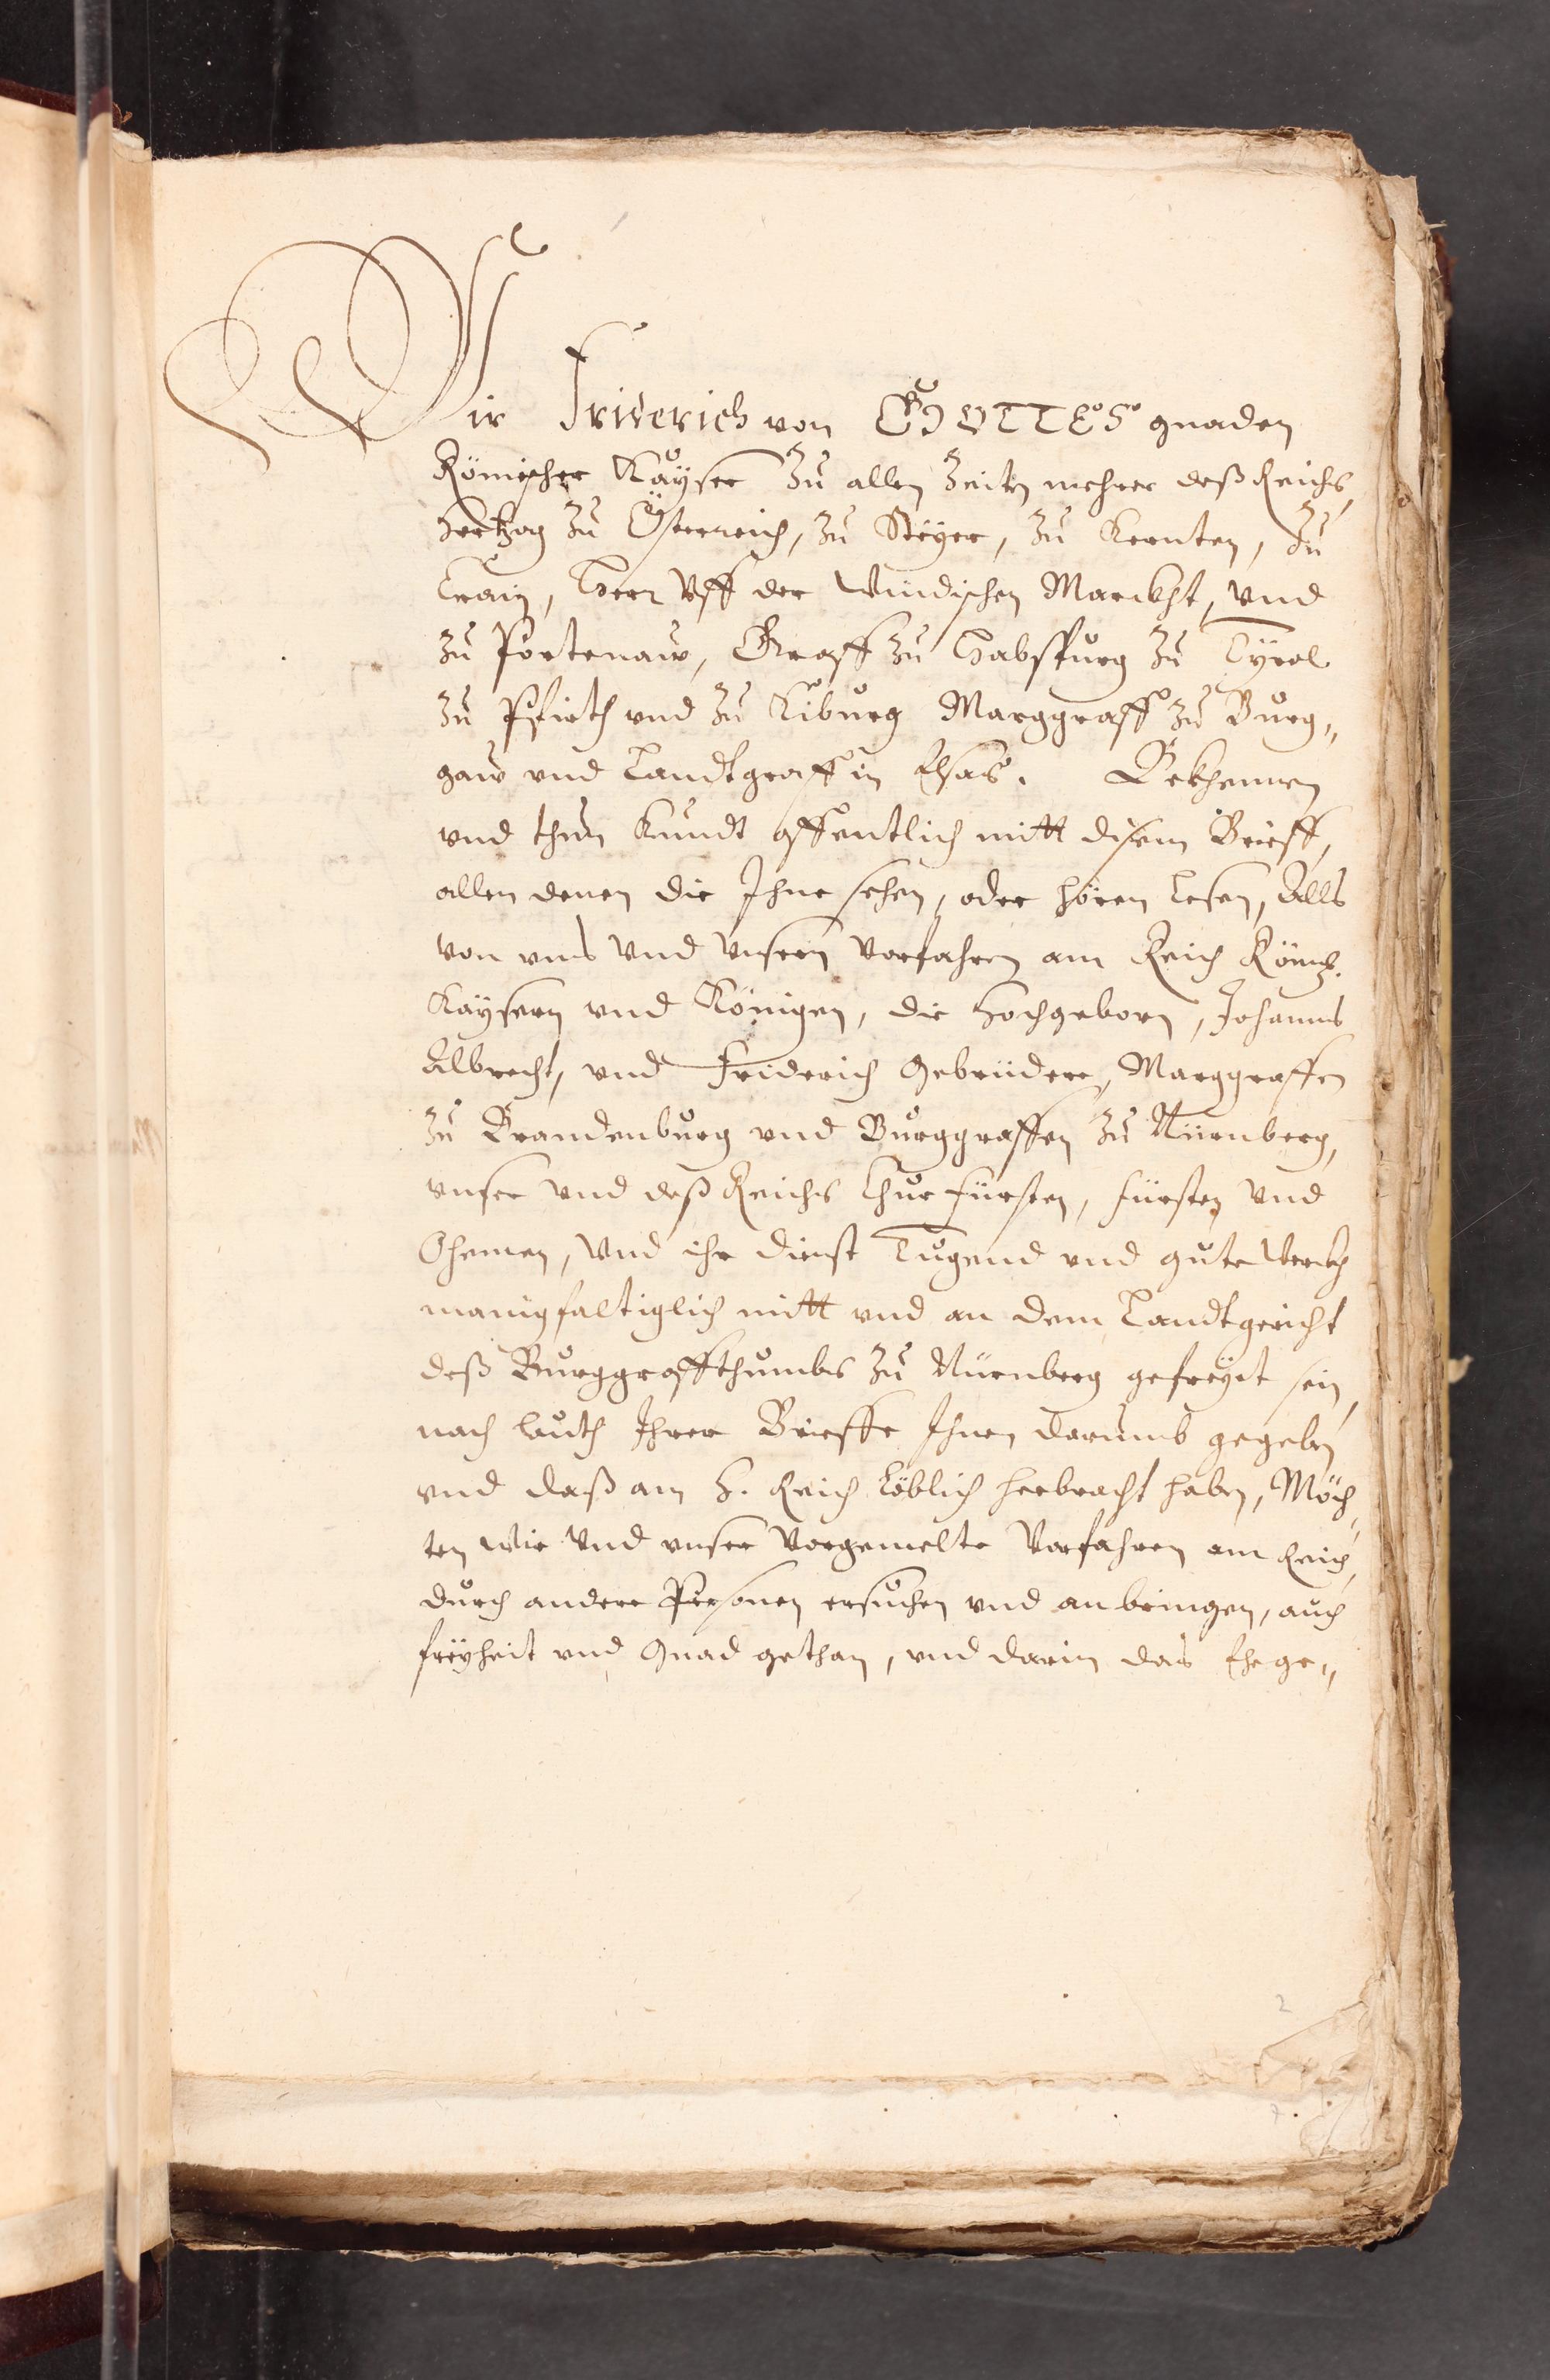 Wir Friderich von GOTTES gnaden
Römischer Kayser zu allen Zeiten mehrer deß Reichs,
Hertzog zu Österreich, zu Steyer, zu Kernten, zu
Crain, Herr Vff der Windischen Marckht, vnd
zu Portenaw, Graff zu Habspurg zu Tyrol
zu Pfirth vnd zu Kiburg Marggraff zu Burg„
gaw vnd Landtgraff in Elsas. Bekhennen
vnd thun Kundt offentlich mitt disem Brieff,
allen denen die Ihne sehen, oder hören Lesen, Alls
von vns Vnd Vnsern Vorfahren am Reich Römsch.
Kaysern vnd Königen, die Hochgeborn, Johanns
Albrecht, vnd Friderich Gebrüdere, Marggraffen
zu Brandenburg vnd Burggraffen zu Nürnberg,
vnser Vnd deß Reichs Churfürsten, Fürsten Vnd
Ohemen, Vnd ihr dienst Tugend vnd gute Werckh
manigfaltiglich mitt vnd an dem Landtgericht
deß Burggraffthumbs zu Nürnberg gefreyet sein,
nach lauth Ihrer Brieffe Ihnen darumb gegeben
vnd daß am H. Reich Löblich herbracht haben, Möch„
ten wir Vnd vnser Vorgemelte Vorfahren am Reich,
durch andere Personen ersuchen vnd anbringen, auch
freyheit vnd Gnad gethan, vnd darin das Ehege„
2